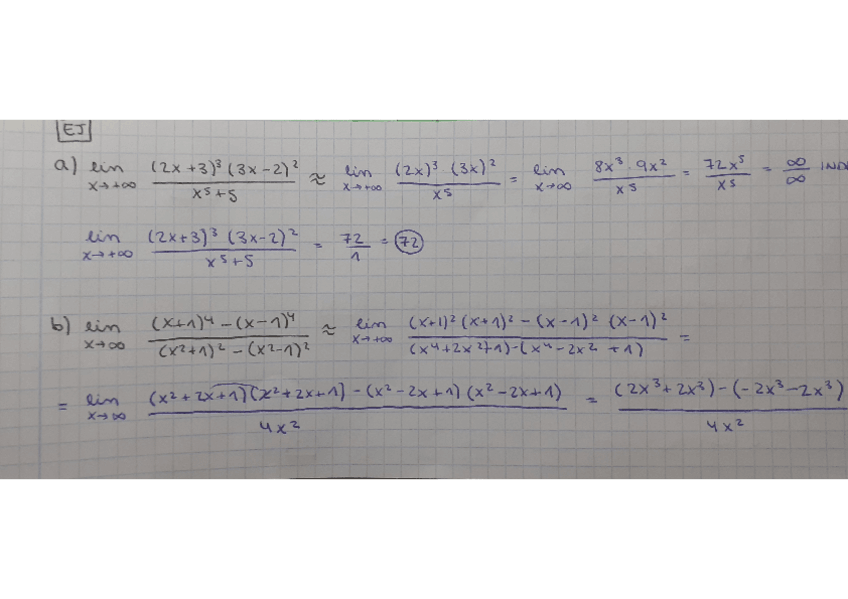 EJ
a) lim x→+∞ (2x+3)³(3x-2)² / x⁵+5 ≈ lim x→+∞ (2x)³·(3x)² / x⁵ = lim x→∞ 8x³·9x² / x⁵ = 72x⁵ / x⁵ = ∞/∞
lim x→+∞ (2x+3)³(3x-2)² / x⁵+5 = 72/1 = 72
b) lim x→∞ (x+1)⁴-(x-1)⁴ / (x²+1)²-(x²-1)² ≈ lim x→+∞ (x+1)²(x+1)²-(x-1)²(x-1)² / (x⁴+2x²+1)-(x⁴-2x²+1) =
= lim x→∞ (x²+2x+1)(x²+2x+1)-(x²-2x+1)(x²-2x+1) / 4x² = (2x³+2x³)-(-2x³-2x³) / 4x²